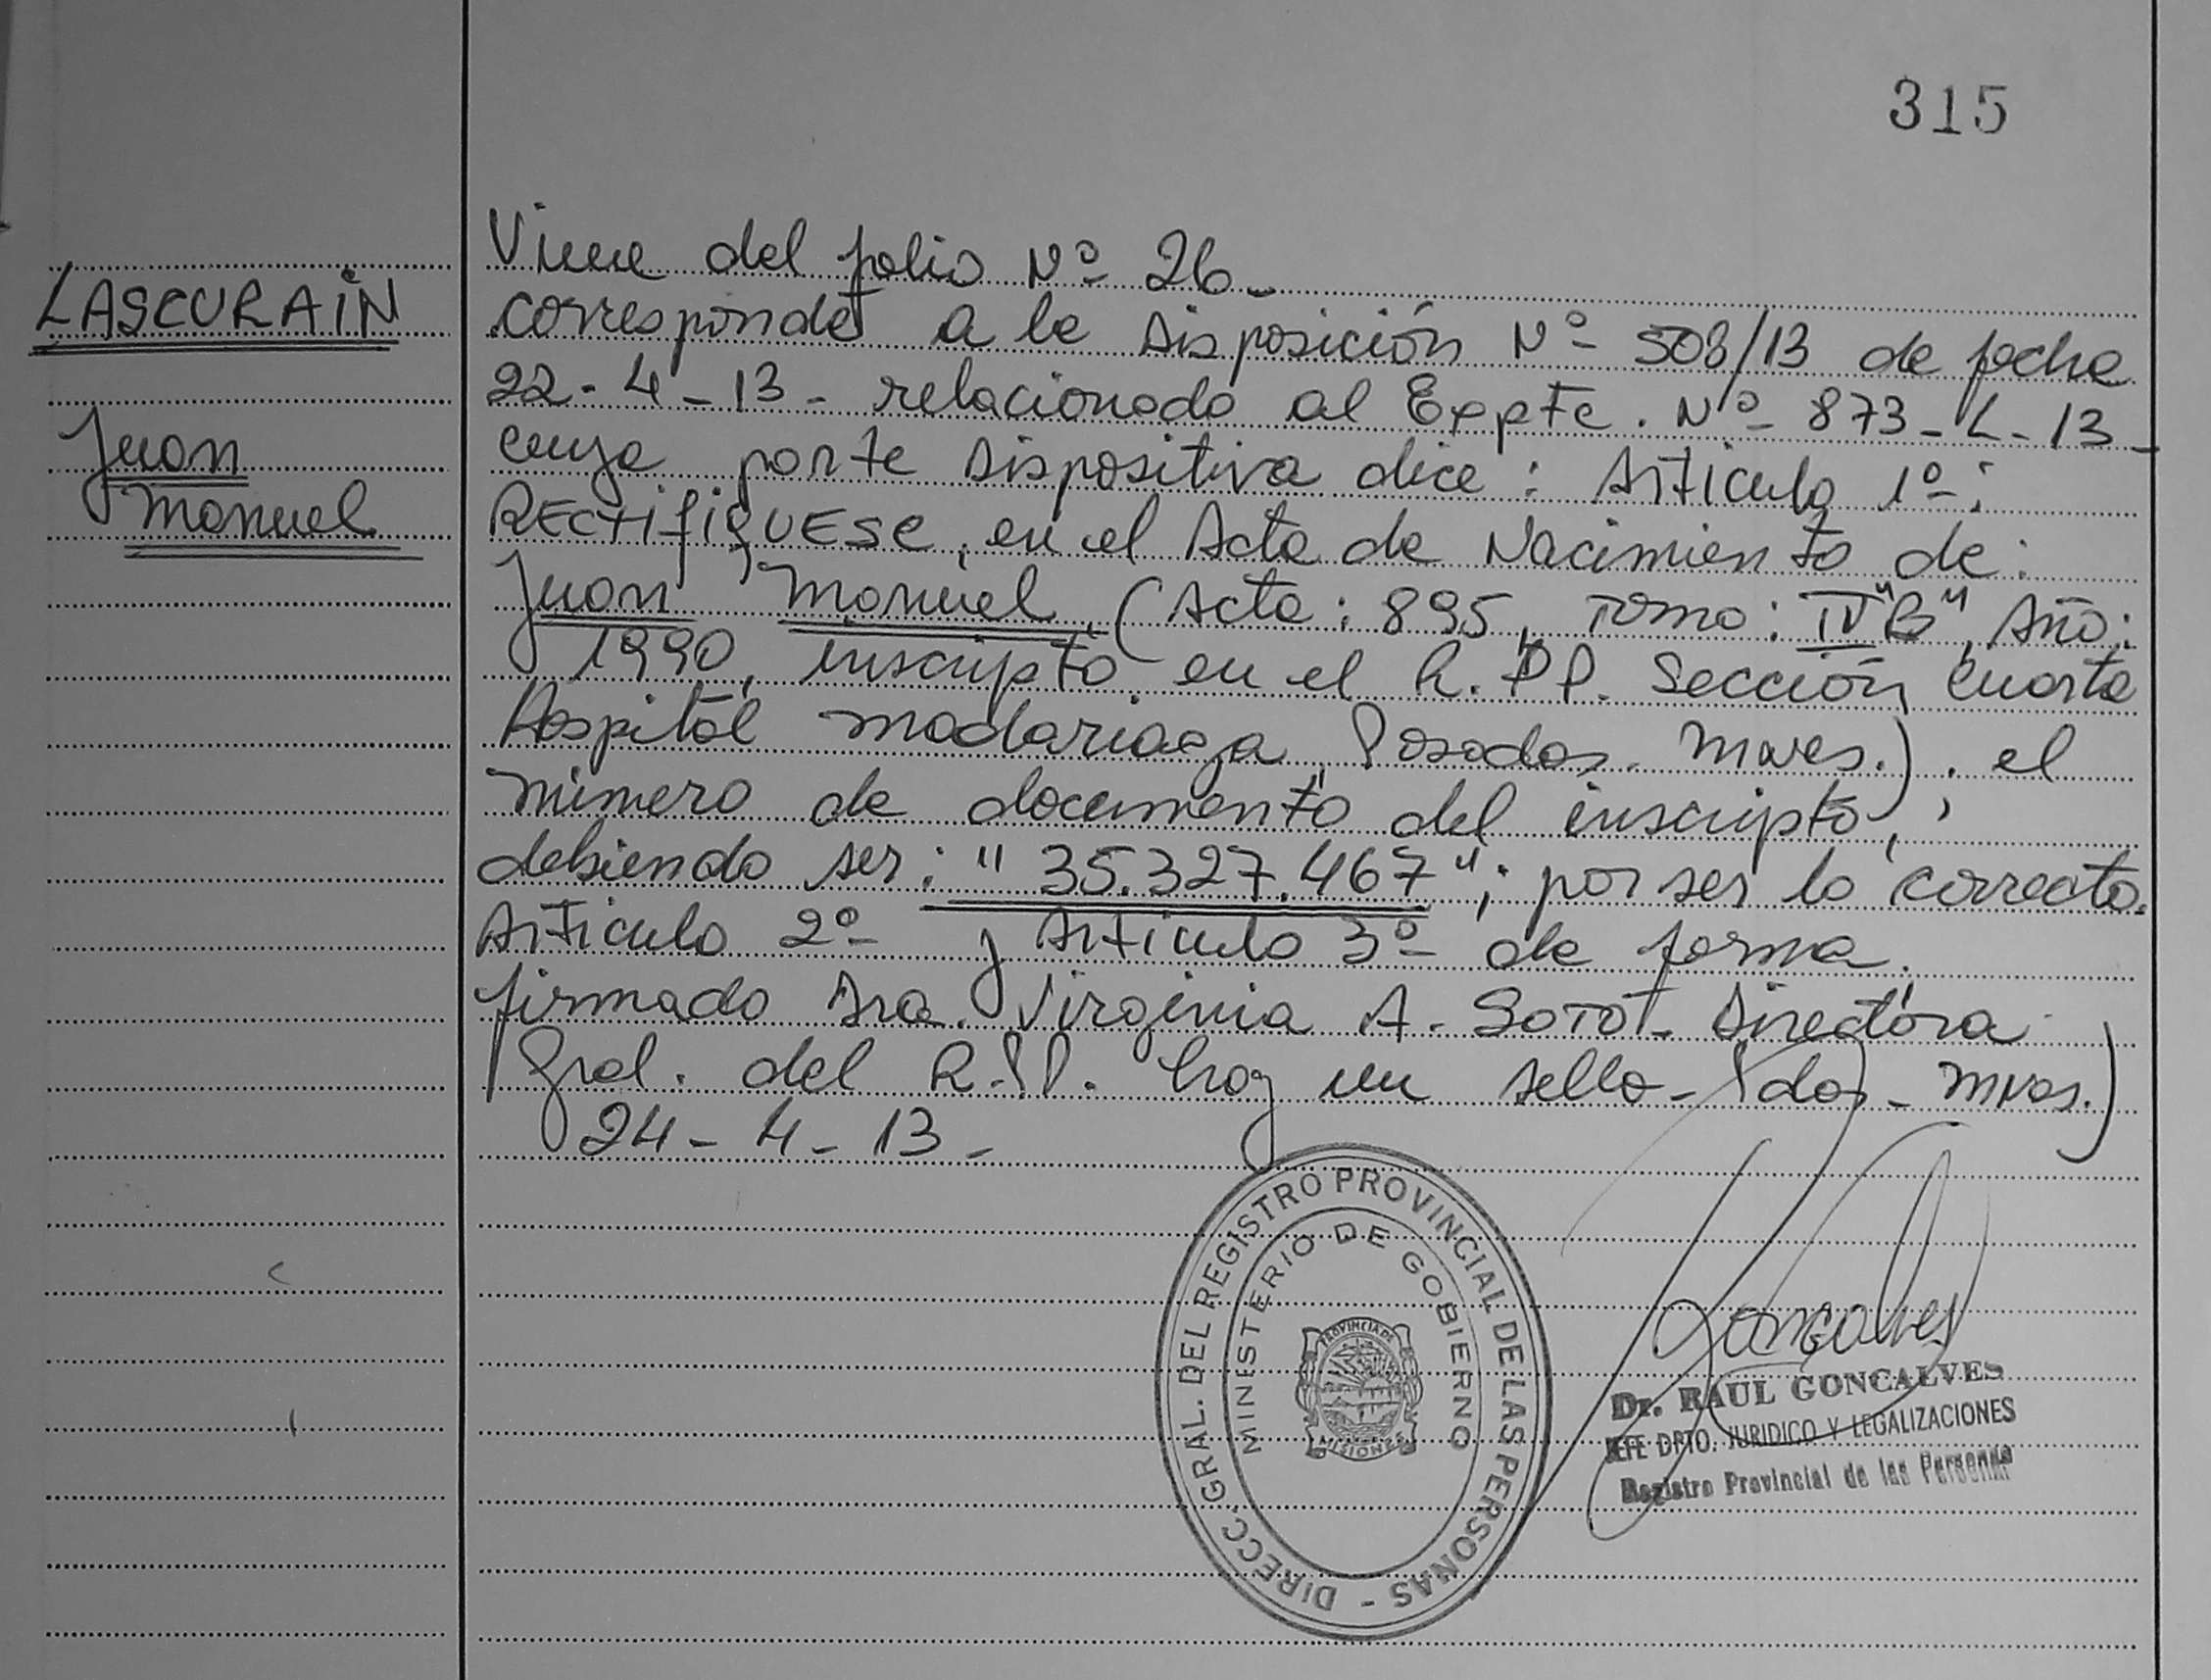 315
LASCURAIN
Juan
Manuel
Viene del folio Nº 26.-
corresponde a la Disposición Nº 508/13 de fecha
22-4-13- relacionado al Expte. Nº 873-L-13-
cuya parte dispositiva dice: Artículo 1º:
RECTIFIQUESE, en el Acta de Nacimiento de:
Juan Manuel, (Acta: 895, Tomo: IV "B", Año:
1990, inscripto en el R.P.P. Sección Cuarta
Hospital Madariaga, Posadas. Mnes.), el
número de documento del inscripto,
debiendo ser: "35.327.467"; por ser lo correcto.
Artículo 2º y Artículo 3º de forma.
firmado Dra. Virginia A. SOTO- Directora
Gral. del R.P.P. hay un sello- Pdas- Mnes.)
24-4-13-
DIRECC. GRAL. DEL REGISTRO PROVINCIAL DE LAS PERSONAS -
MINISTERIO DE GOBIERNO
PROVINCIA DE
MISIONES
Goncalves
Dr. RAUL GONCALVES
JEFE DPTO. JURIDICO Y LEGALIZACIONES
Registro Provincial de las Personas